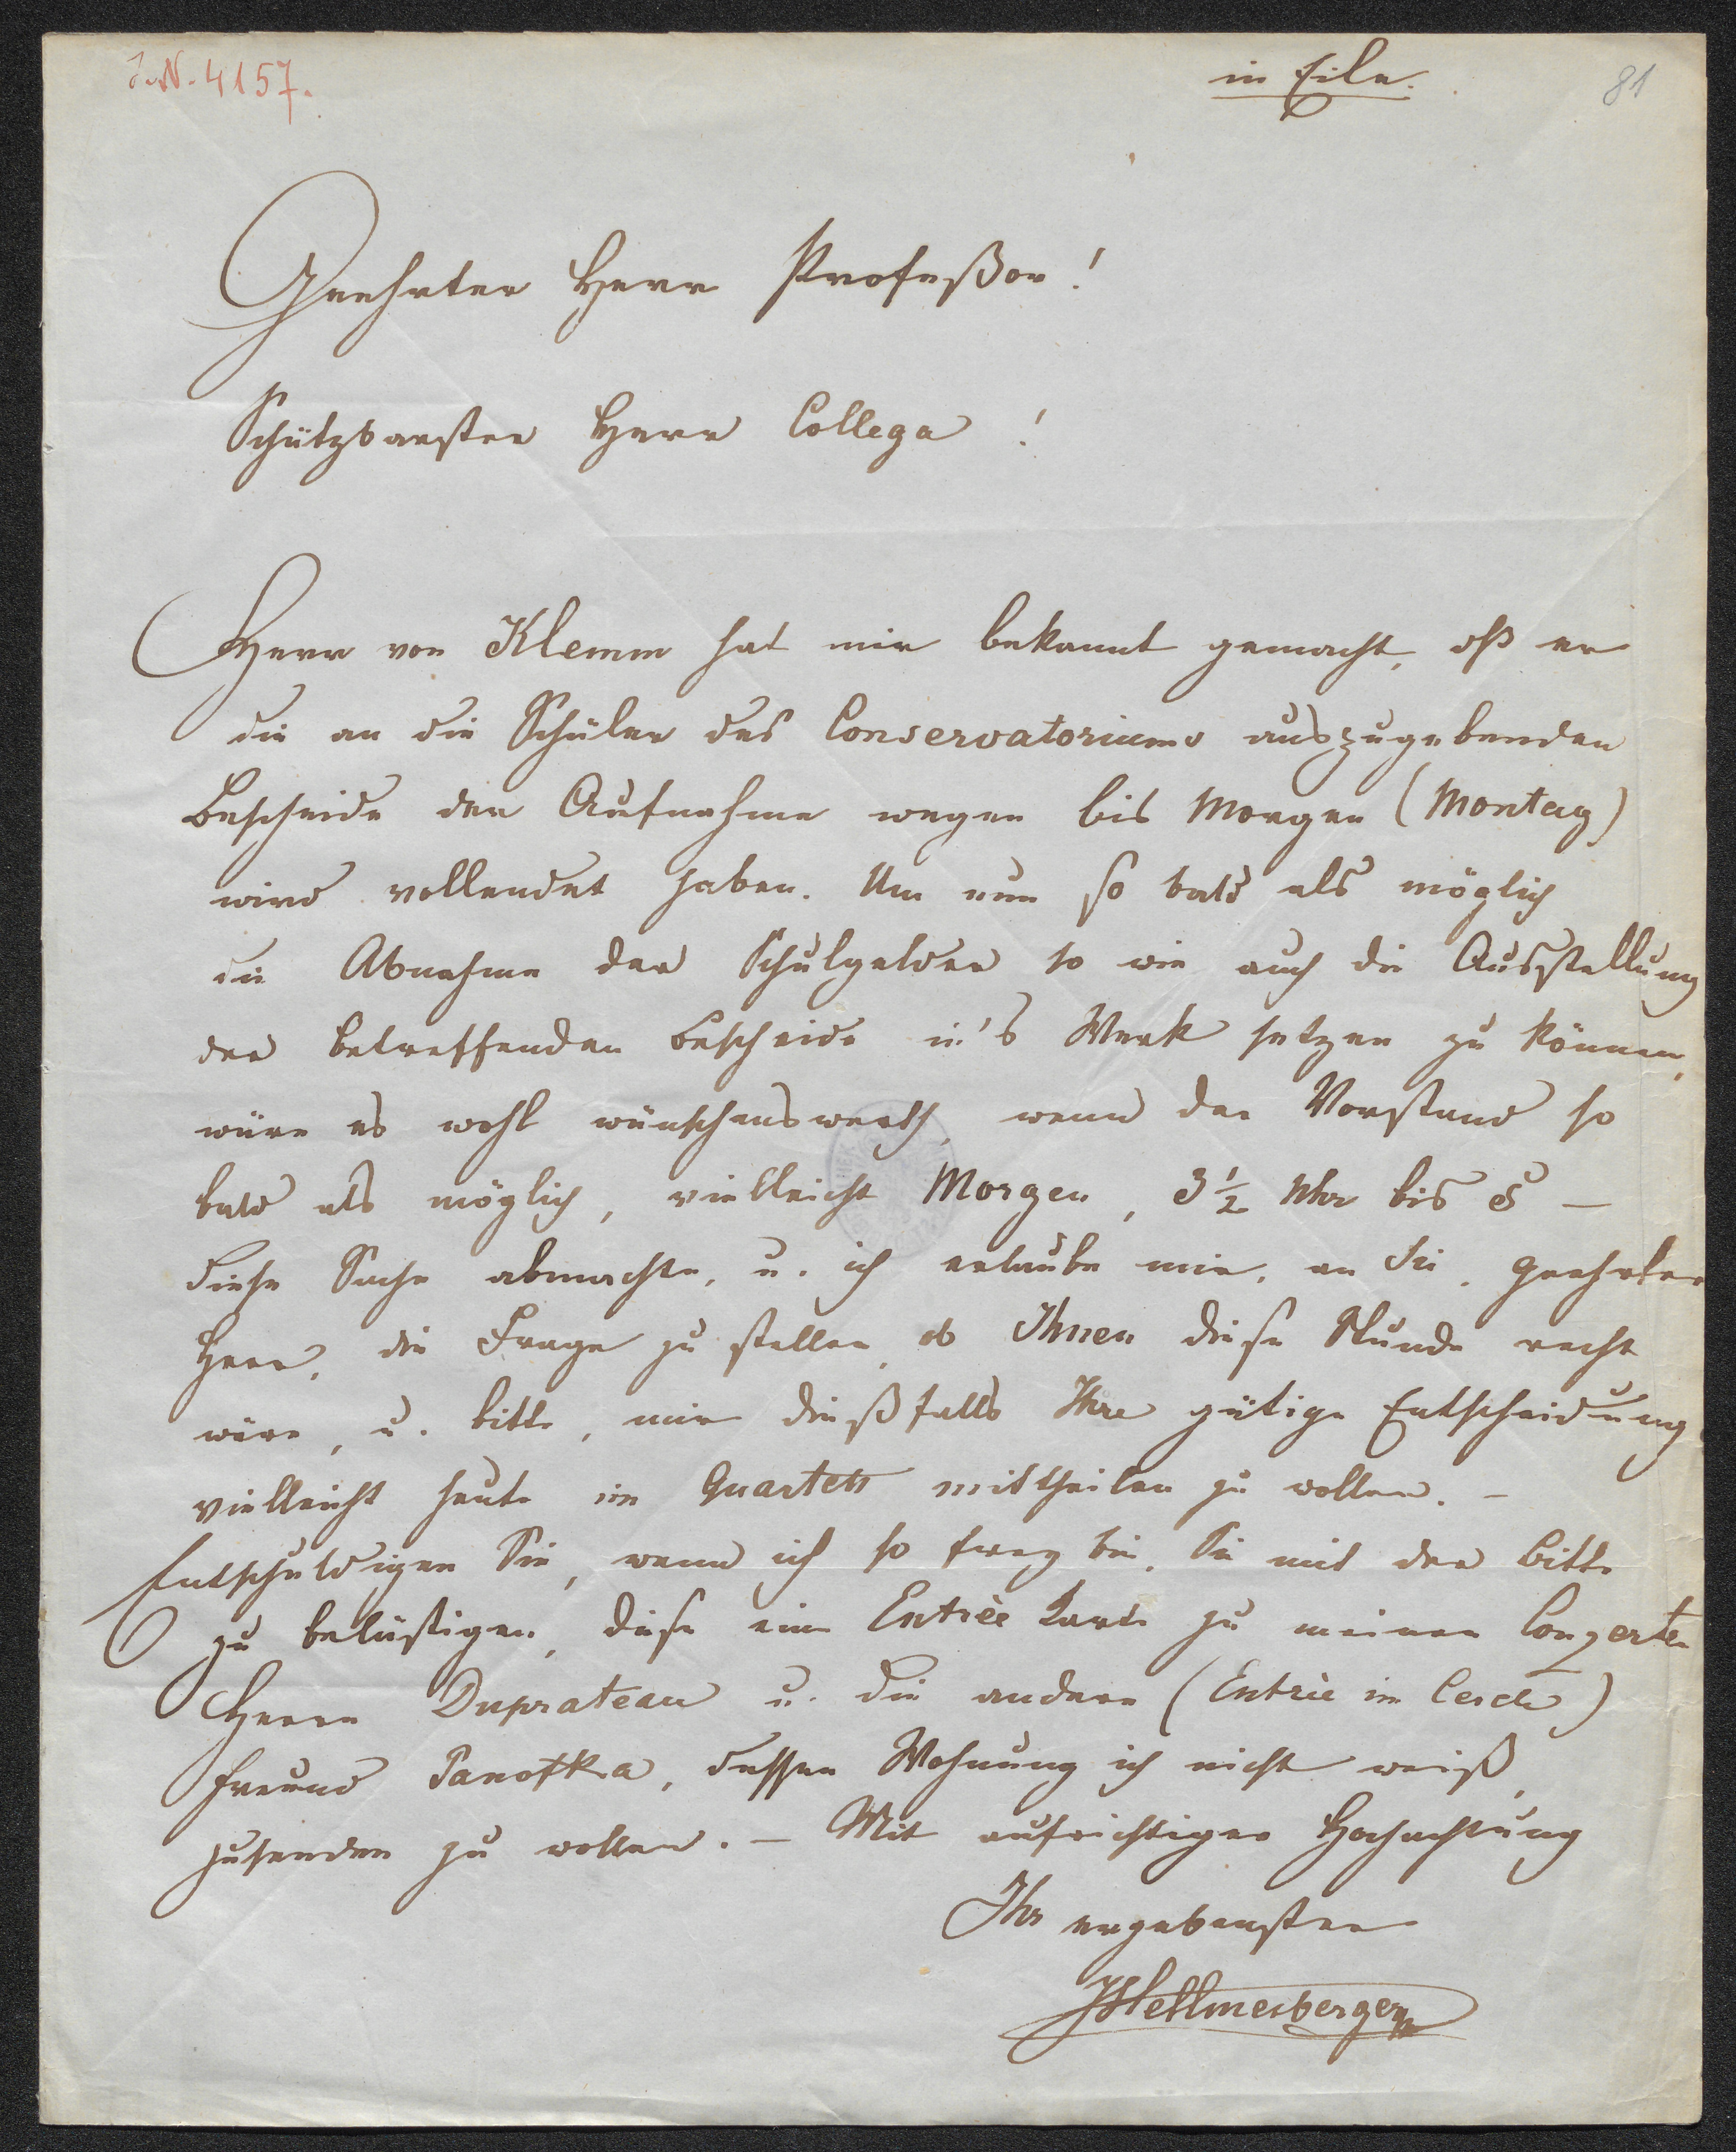 I.N. 4157.
in Eile.
81
Geehrter Herr Profeßor!
Schätzbarster Herr Collega!
Herr von Klemm hat mir bekannt gemacht, dß er
die an die Schüler des Conservatoriums auszugebenden
Bescheide der Aufnahme wegen bis Morgen (Montag)
wird vollendet haben. Um nun so bald als möglich
die Abnahme der Schulgelder so wie auch die Ausstellung
der betreffenden Bescheide in's Werk setzen zu können,
wäre es wohl wünschenswerth, wenn der Vorstand so
bald als möglich, vielleicht Morgen, 3 1/2 Uhr bis 5 —
diese Sache abmachte, u. ich erlaube mir, an Sie, geehrter
Herr, die Frage zu stellen, ob Ihnen diese Stunde recht
wäre, u. bitte, mir dießfalls Ihre gütige Entscheidung
vielleicht heute im Quartett mittheilen zu wollen. —
Entschuldigen Sie, wenn ich so frey bin, Sie mit der Bitte
zu belästigen, diese eine Entrèe Karte zu meinen Conzerten
Herrn Duprateau u. die andere (Entrèe im Cercle)
Freund Panofka, dessen Wohnung ich nicht weiß,
zusenden zu wollen. — Mit aufrichtiger Hochachtung
Ihr ergebenster
JHellmesberger